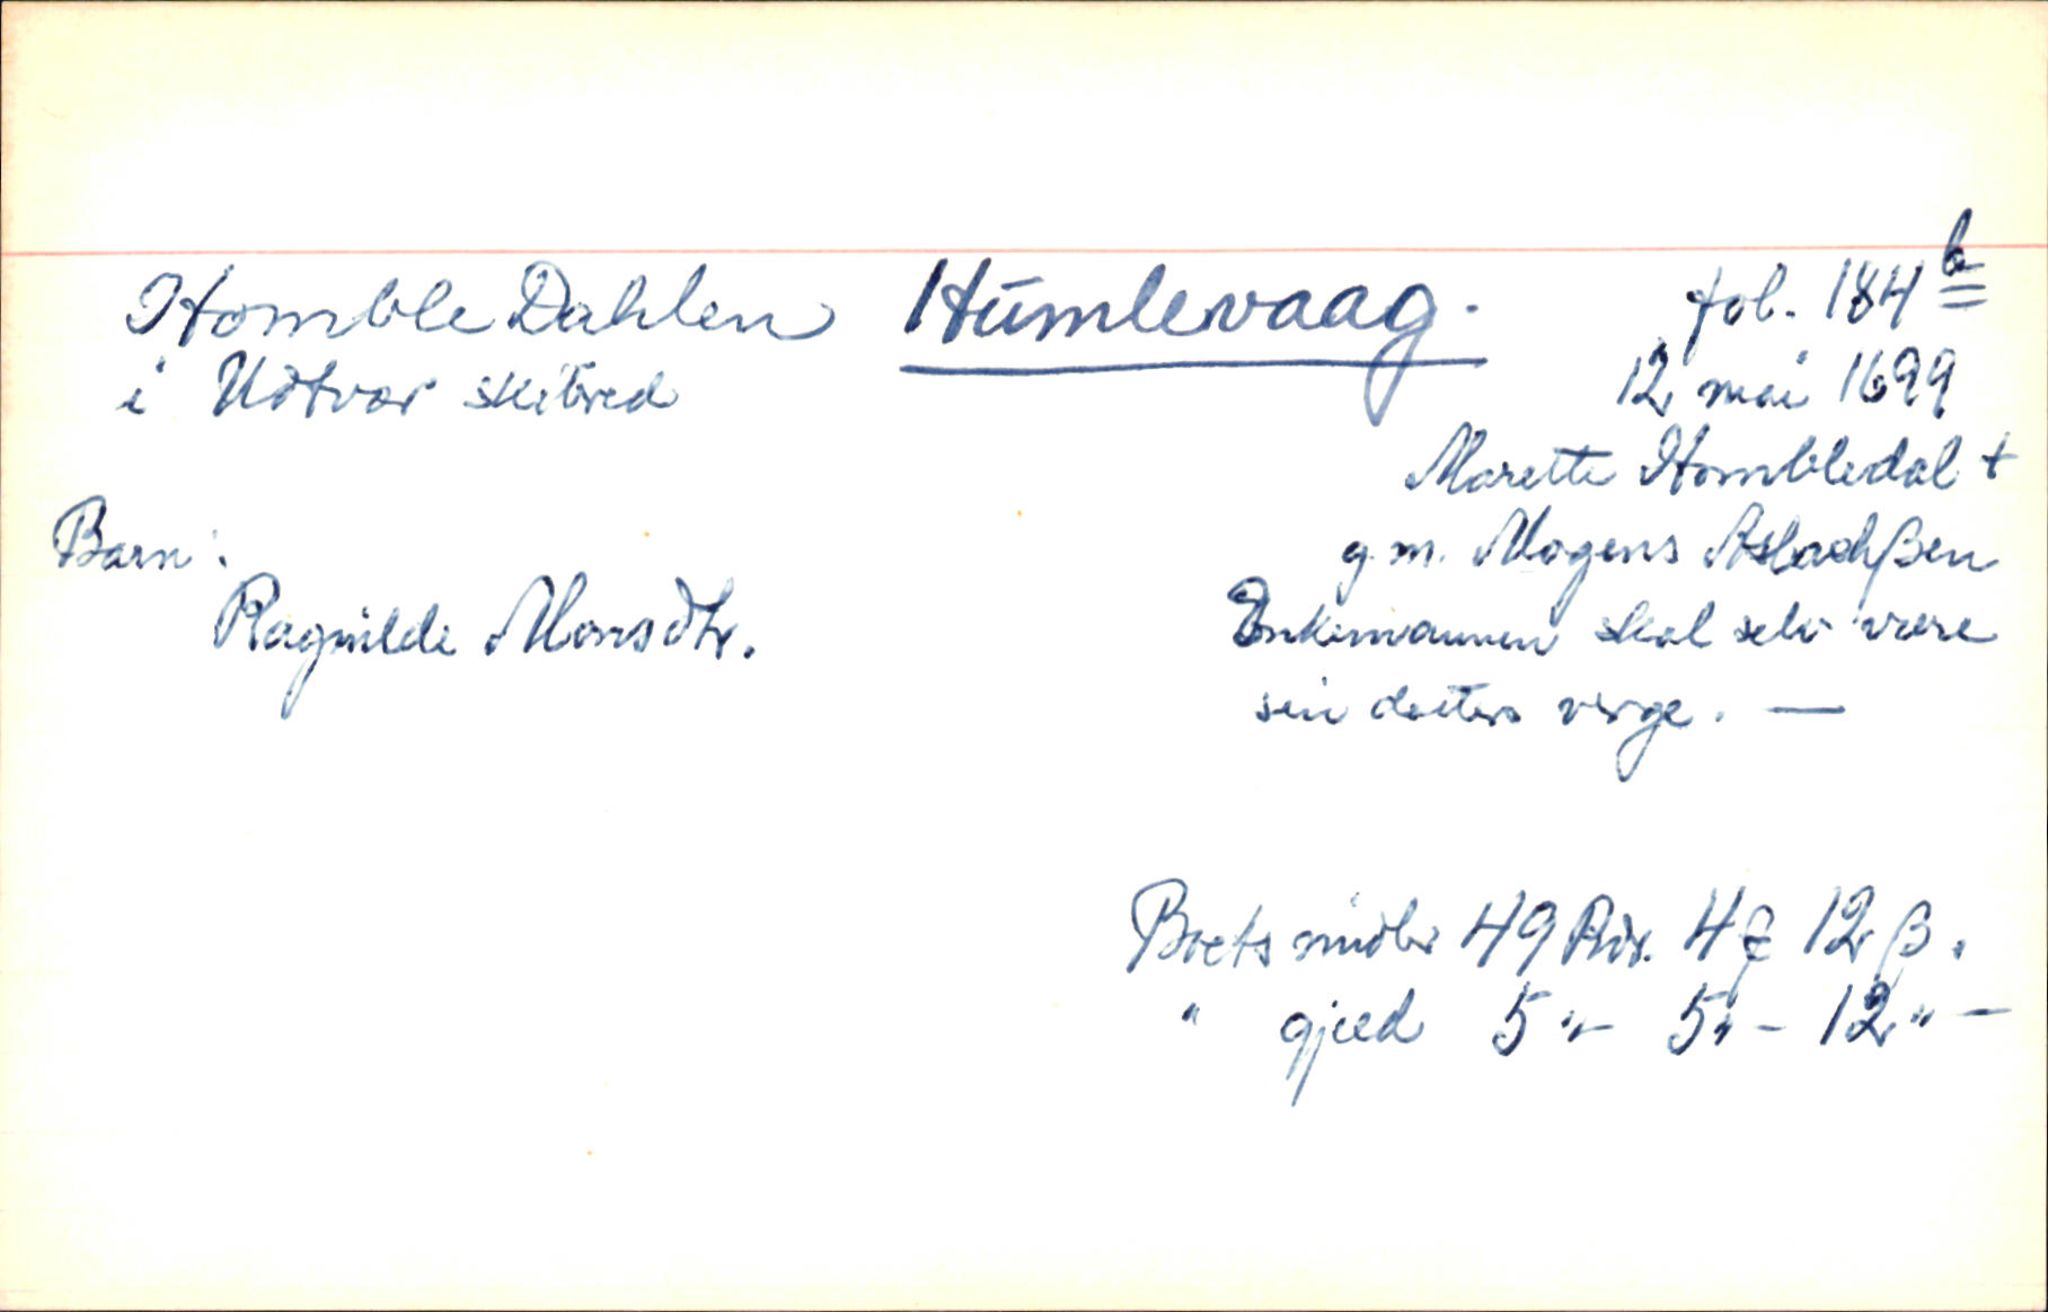 Homble Dahlen Humlevaag. fol. 184 b
i Udtvær skibred 12 mai 1699
Marette Hombledal +
g.m. Mogens Aslachßen
Enkemannen skal selv være
sin datters verge. —
Barn:
Ragnilde Monsdtr.
Boets midler 49 Rdr. 4 12 ß.
" gjæld 5 "- 5 "- 12 " -